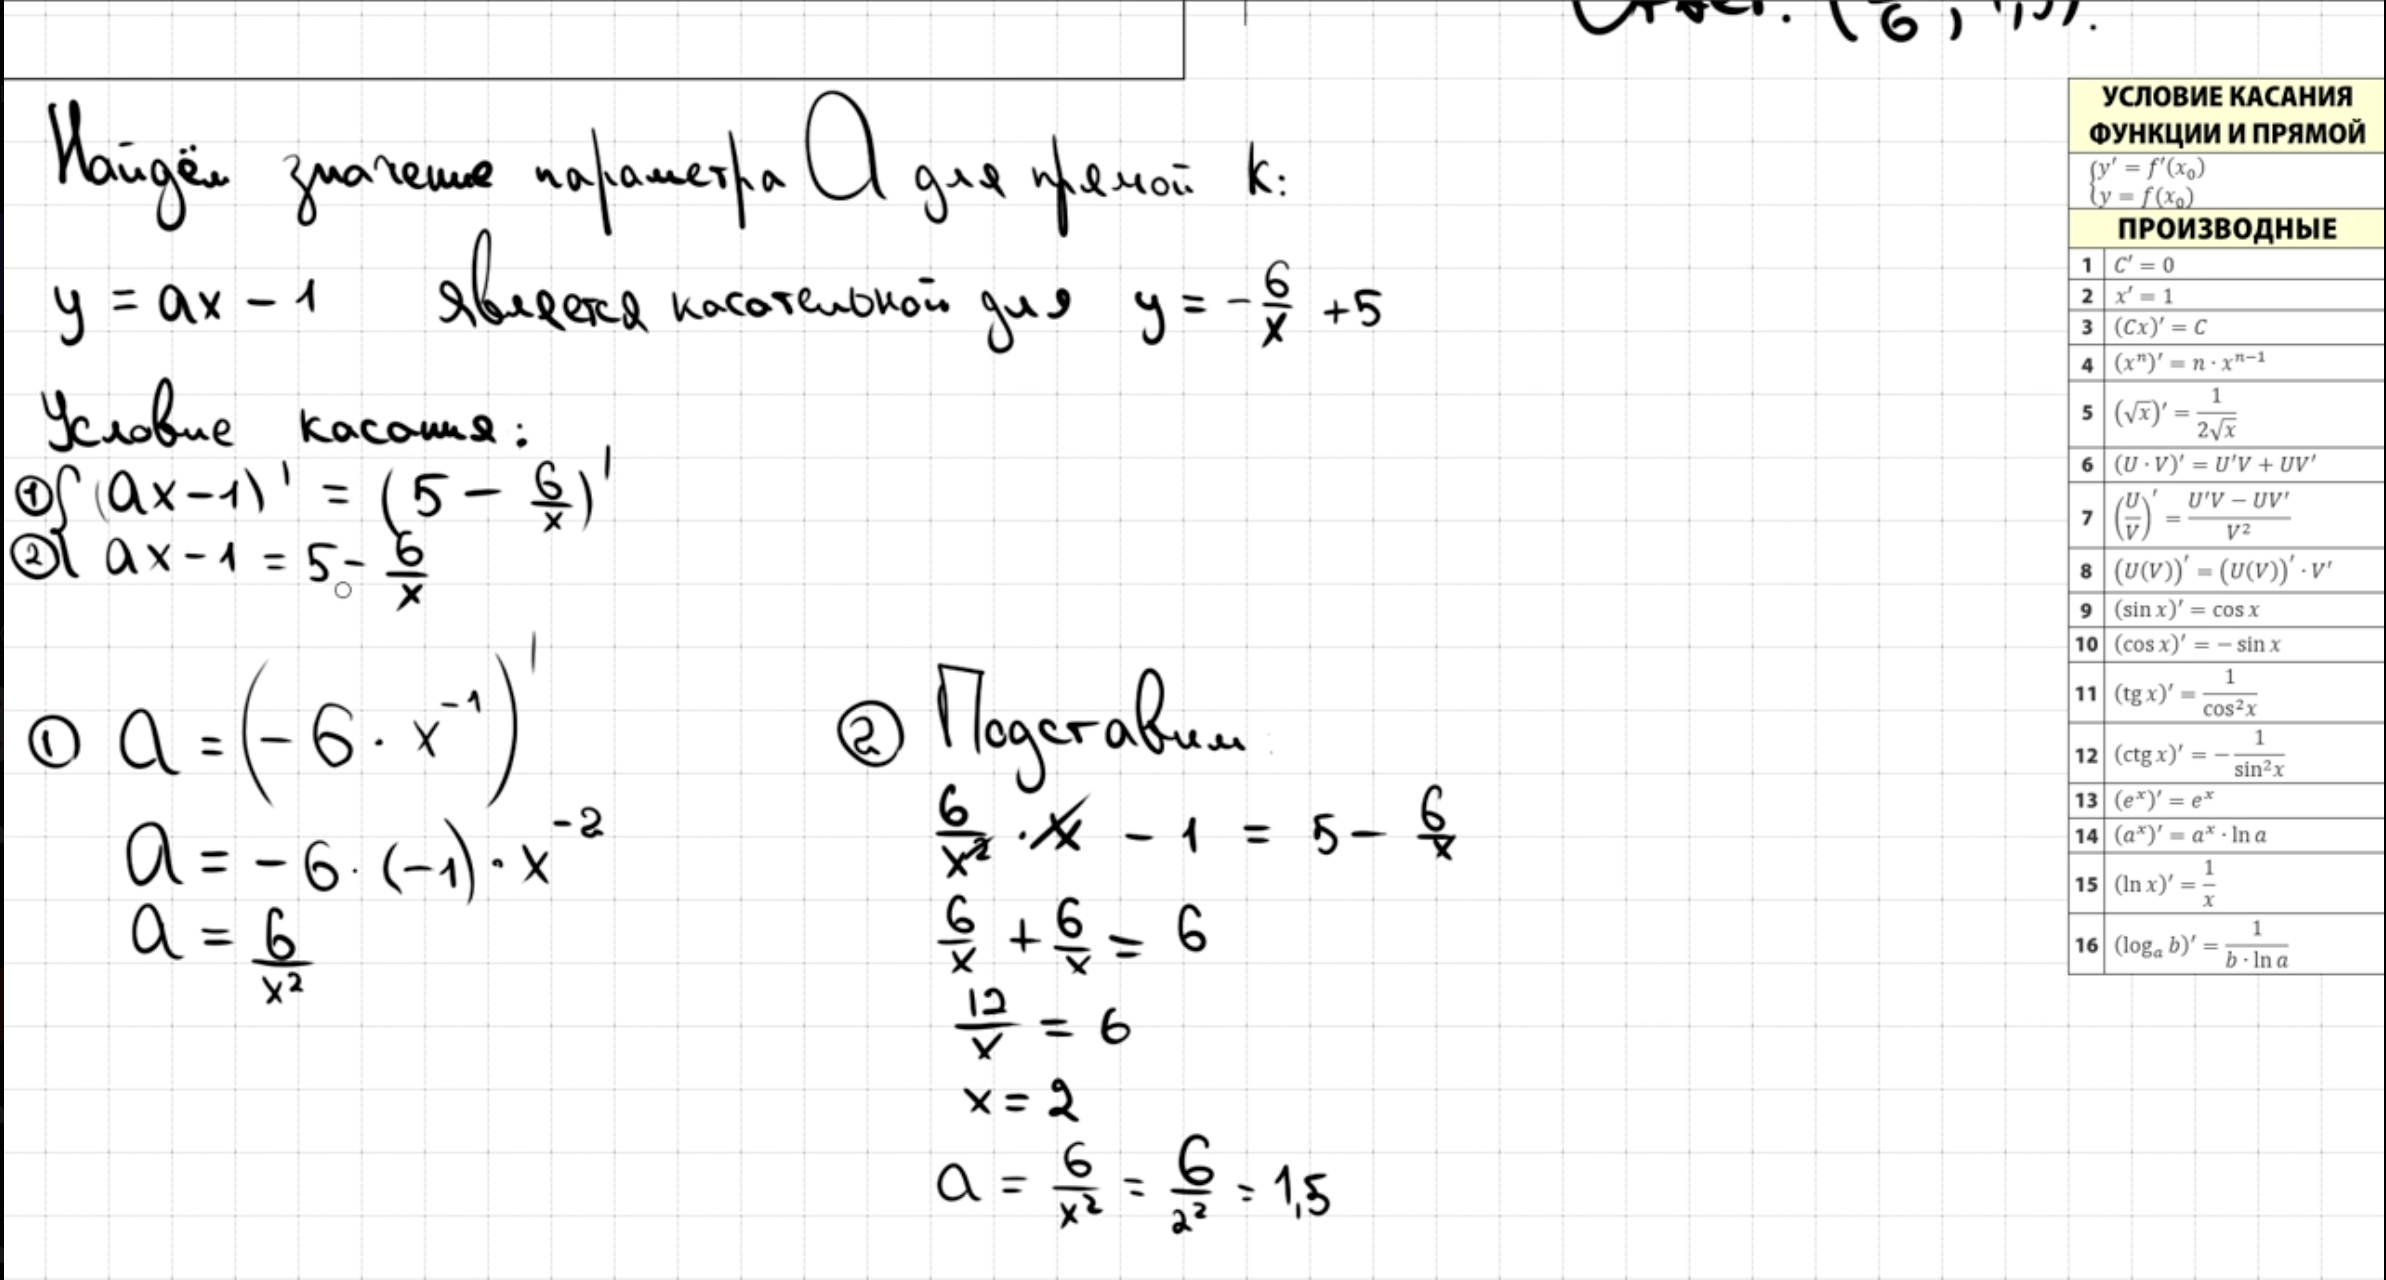 Ответ: (/6; 1,5).
Найдём значение параметра a для прямой k:
y = ax - 1 является касательной для y = -6/x + 5
Условие касания:
① { (ax-1)' = (5 - 6/x)'
② { ax - 1 = 5 - 6/x
① a = (-6 · x⁻¹)'
a = -6 · (-1) · x⁻²
a = 6/x²
② Подставим
6/x² · x - 1 = 5 - 6/x
6/x + 6/x = 6
12/x = 6
x = 2
a = 6/x² = 6/2² = 1,5
УСЛОВИЕ КАСАНИЯ
ФУНКЦИИ И ПРЯМОЙ
{y' = f'(x₀)
{y = f(x₀)
ПРОИЗВОДНЫЕ
1 C' = 0
2 x' = 1
3 (Cx)' = C
4 (xⁿ)' = n · xⁿ⁻¹
5 (√x)' = 1/(2√x)
6 (U · V)' = U'V + UV'
7 (U/V)' = (U'V − UV')/V²
8 (U(V))' = (U(V))' · V'
9 (sin x)' = cos x
10 (cos x)' = − sin x
11 (tg x)' = 1/cos²x
12 (ctg x)' = −1/sin²x
13 (eˣ)' = eˣ
14 (aˣ)' = aˣ · ln a
15 (ln x)' = 1/x
16 (logₐ b)' = 1/(b · ln a)